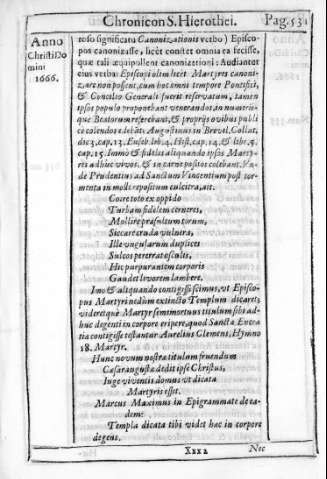 Chronicon S. Hierothei. Pag. 531
Anno
Christi Do
mini
1666.
toso significatu Canonizationis verbo) Episco-
pos canonizasse, licèt constet omnia ea fecisse,
quæ tali æquipollent canonizationi: Audiantur
eius verba: Episcopi olim licèt Martyres canoni-
zare non possent, cum hoc omni tempore Pontifici,
& Concilio Generali fuerit reservatum, tamen
ipsos populo proponebant venerandos, in numerũ-
que Beatorum referebant, & proprijs ovibus publi
cè colendos edebãt. Augustinus in Brevil. Collat.
die 3. cap. 13. Euseb. lib. 4. Hist. cap. 14. & libr. 5.
cap. 15. Immò & fideles aliquando ipsos Marty-
res adhuc vivos, & in carne positos colebant. Vn-
de Prudentius ad Sanctum Vincentium post tor-
menta in molli repositum culcitra, ait.
Coire toto ex oppido
Turbam fidelem cerneres,
Mollire præfultum torum,
Siccare cruda vulnera,
Ille ungularum duplices
Sulcos pererrat osculis,
Hic purpurantem corporis
Gaudet levorem lambere.
Imo & aliquando contigisse scimus, vt Episco-
pus Martyri nedùm extincto Templum dicaret;
videretque Martyr semimortuus titulum sibi ad-
huc degenti in corpore erigere, quod Sancta Encra
tia contigisse testantur Aurelius Clemens, Hymno
18. Martyr.
Hunc novum nostræ titulum fruendum
Cæsaraugustæ dedit ipse Christus,
Iuge viventis domus vt dicata
Martyris esset.
Marcus Maximus in Epigrammate de ea-
dem:
Templa dicata tibi videt hac in corpore
degens.
Xxx 2 Nec